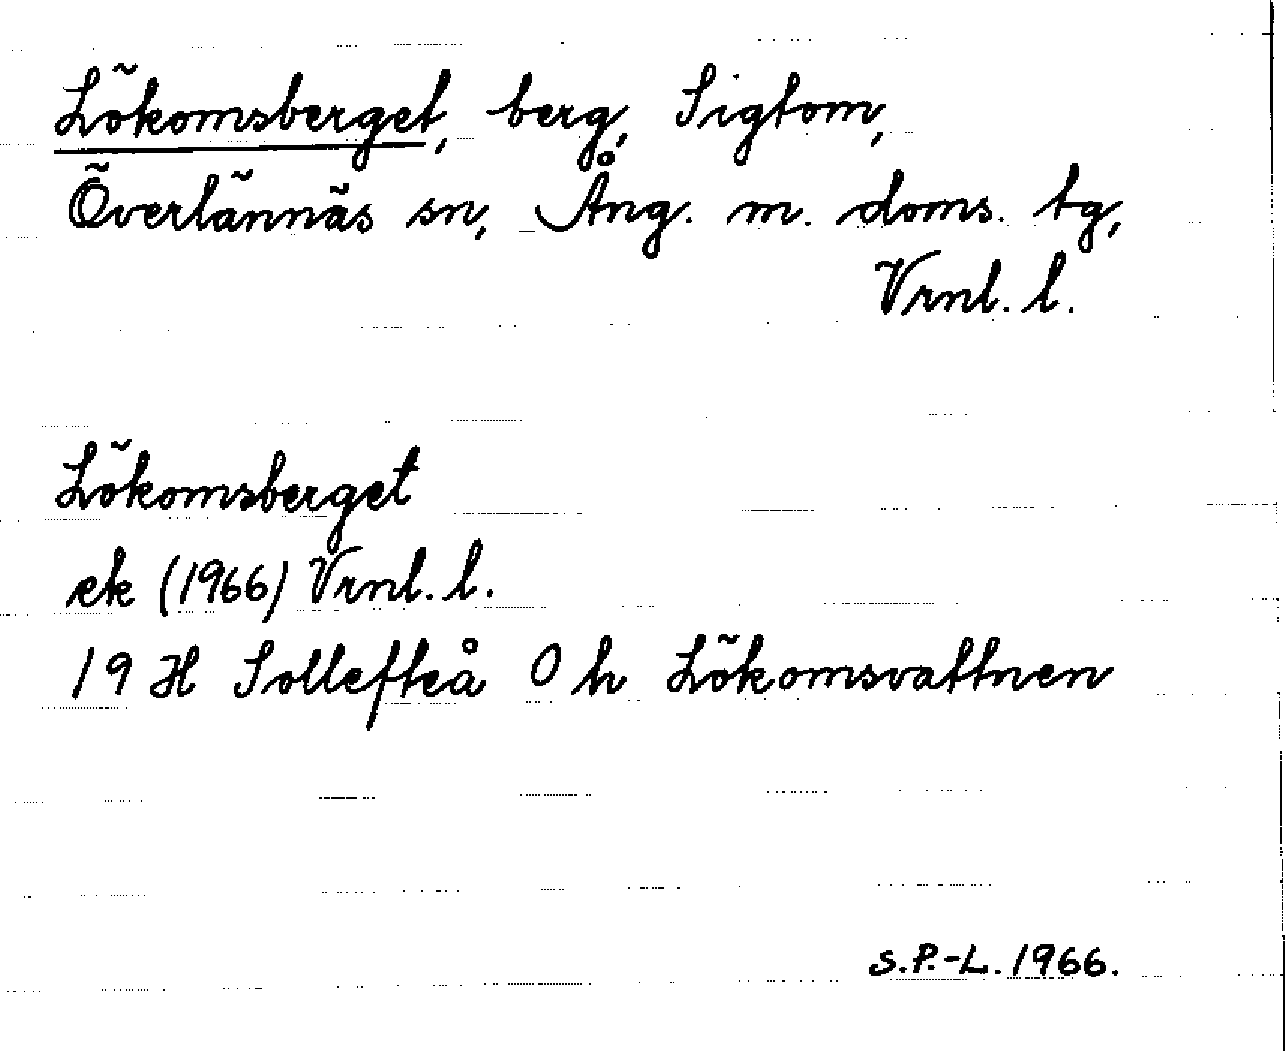 Lökomsberget, berg, Sigtom,
Överlännäs sn, Ång. m. doms. tg,
Vrnl. l.
Lökomsberget
ek (1966) Vrnl. l.
19 H Sollefteå 0 h Lökomsvattnen
S.P.-L. 1966.